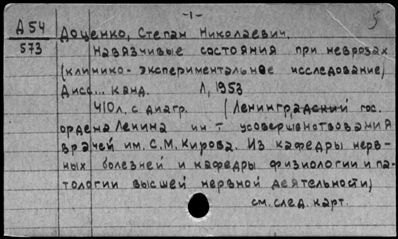 -1-
5
А 54
573
Доценко, Степан Николаевич.
Навязчивые состояния при неврозах
(клинико-экспериментальное исследование)
Дисс... канд. Л, 1953
410л. с диагр. (Ленинградский гос.
ордена Ленина ин-т усовершенствования
врачей им. С.М. Кирова. Из кафедры нерв-
ных болезней и кафедры физиологии и па-
тологии высшей нервной деятельности)
см. след. карт.